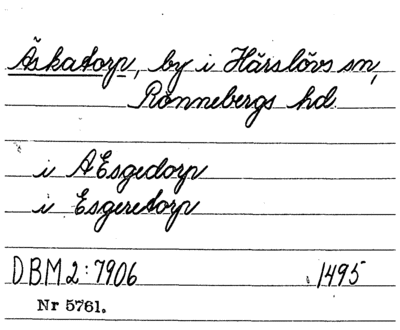 Äskatorp, by i Härslövs sn,
Rönnebergs hd.
i AEsgedorp
i Esgeretorp
DBM 2:7906 1495
Nr 5761.